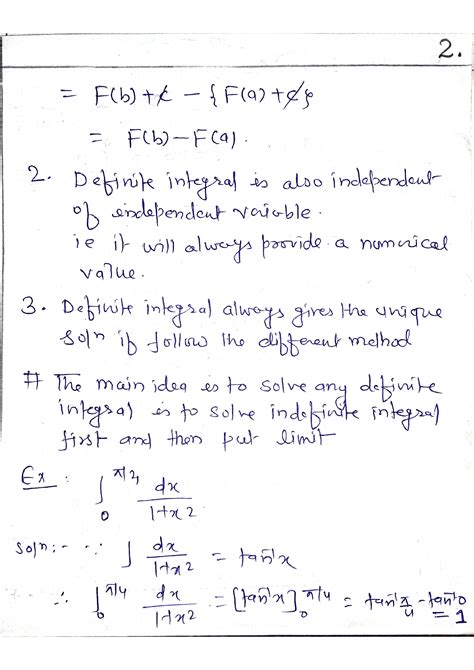 2.
= F(b)+c - {F(a)+c}
= F(b)-F(a).
2. Definite integral is also independent
of independent variable.
ie it will always provide a numerical
value.
3. Definite integral always gives the unique
soln if follow the different method
# The main idea is to solve any definite
integral is to solve indefinite integral
first and then put limit
Ex : ∫₀^(π/2) dx/(1+x²)
Soln:- ∵ ∫ dx/(1+x²) = tan⁻¹x
∴ ∫₀^(π/4) dx/(1+x²) = [tan⁻¹x]₀^(π/4) = tan⁻¹π/4 - tan⁻¹0
= 1